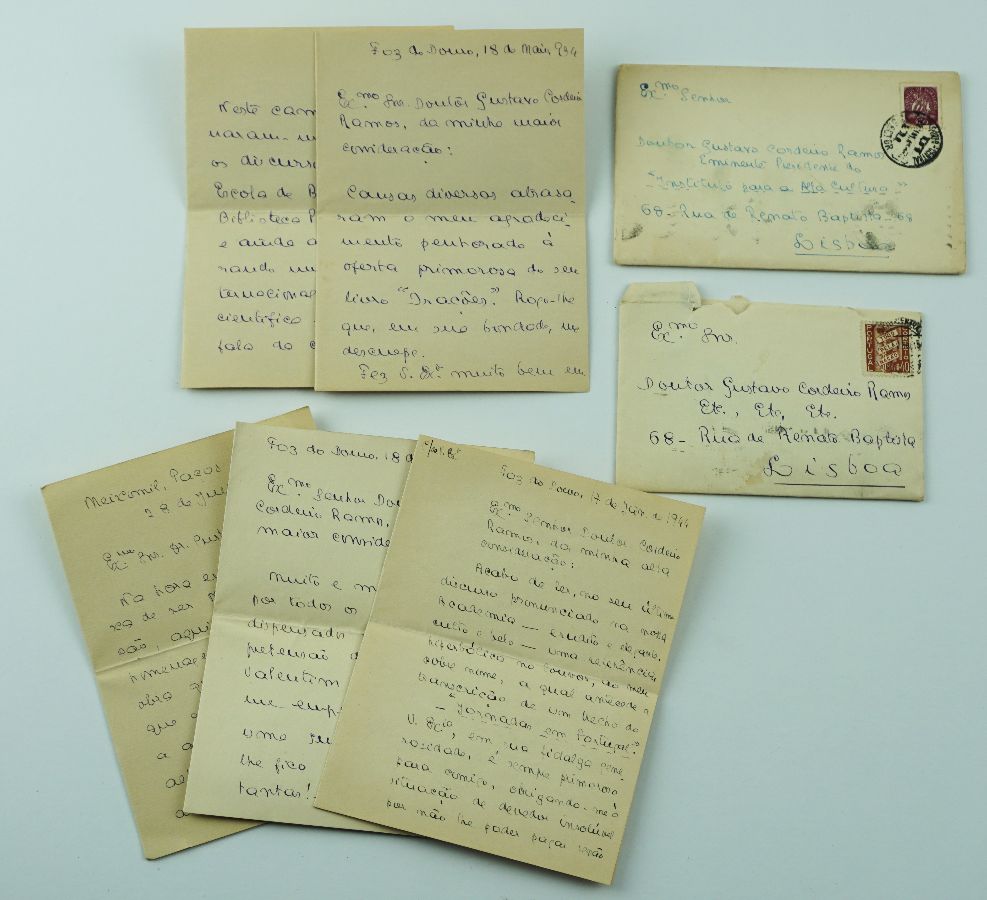 Neste cam
naram-m
os discurs
Escola de B
Biblioteca P
e ainda a
rando um
ternacional
científico
fala do c
Foz do Douro, 18 de Maio, 934
Ex.mo Snr. Doutor Gustavo Cordeiro
Ramos, da minha maior
consideração:
Causas diversas atrasa
ram o meu agradeci
mento penhorado à
oferta primorosa do seu
livro "Orações". Rogo-lhe
que, em sua bondade, me
desculpe.
Fez V. Ex.ª muito bem em
Ex.mo Senhor
Doutor Gustavo Cordeiro Ramos
Eminente Presidente do
"Instituto para a Alta Cultura"
68-Rua de Renato Baptista-68
Lisboa
Ex.mo Snr.
PORTUGAL
CORREIO
40
Doutor Gustavo Cordeiro Ramos
Etc., Etc., Etc.
68-Rua de Renato Baptista
Lisboa
Meixomil, Paços
28 de
Ex.mo Snr. Dr. Gust
Na hora em
são, aqui
homenage
obra
que
a a
Foz do Douro, 18 d
Ex.mo Senhor Dou
Cordeiro Ramos,
maior conside
Muito e m
por todos os
dispensados
pretensão d
Valentim
me emp
uma
lhe fico
tantas!
Foz do Douro, 17 de Jan. de 1944
Ex.mo Senhor Doutor Cordeiro
Ramos, da minha alta
consideração:
Acabo de ler, no seu último
discurso pronunciado na nossa
Academia — erudito e elegante,
culto e belo — uma referência
hiperbólica no louvor, ao meu
pobre nome, a qual antecede a
transcrição de um trecho do
— "Jornadas em Portugal".
V. Ex.ª, em sua fidalga gene
rosidade, é sempre primoroso
para comigo, obrigando-me à
situação de devedor insolúvel
por não lhe poder pagar senão